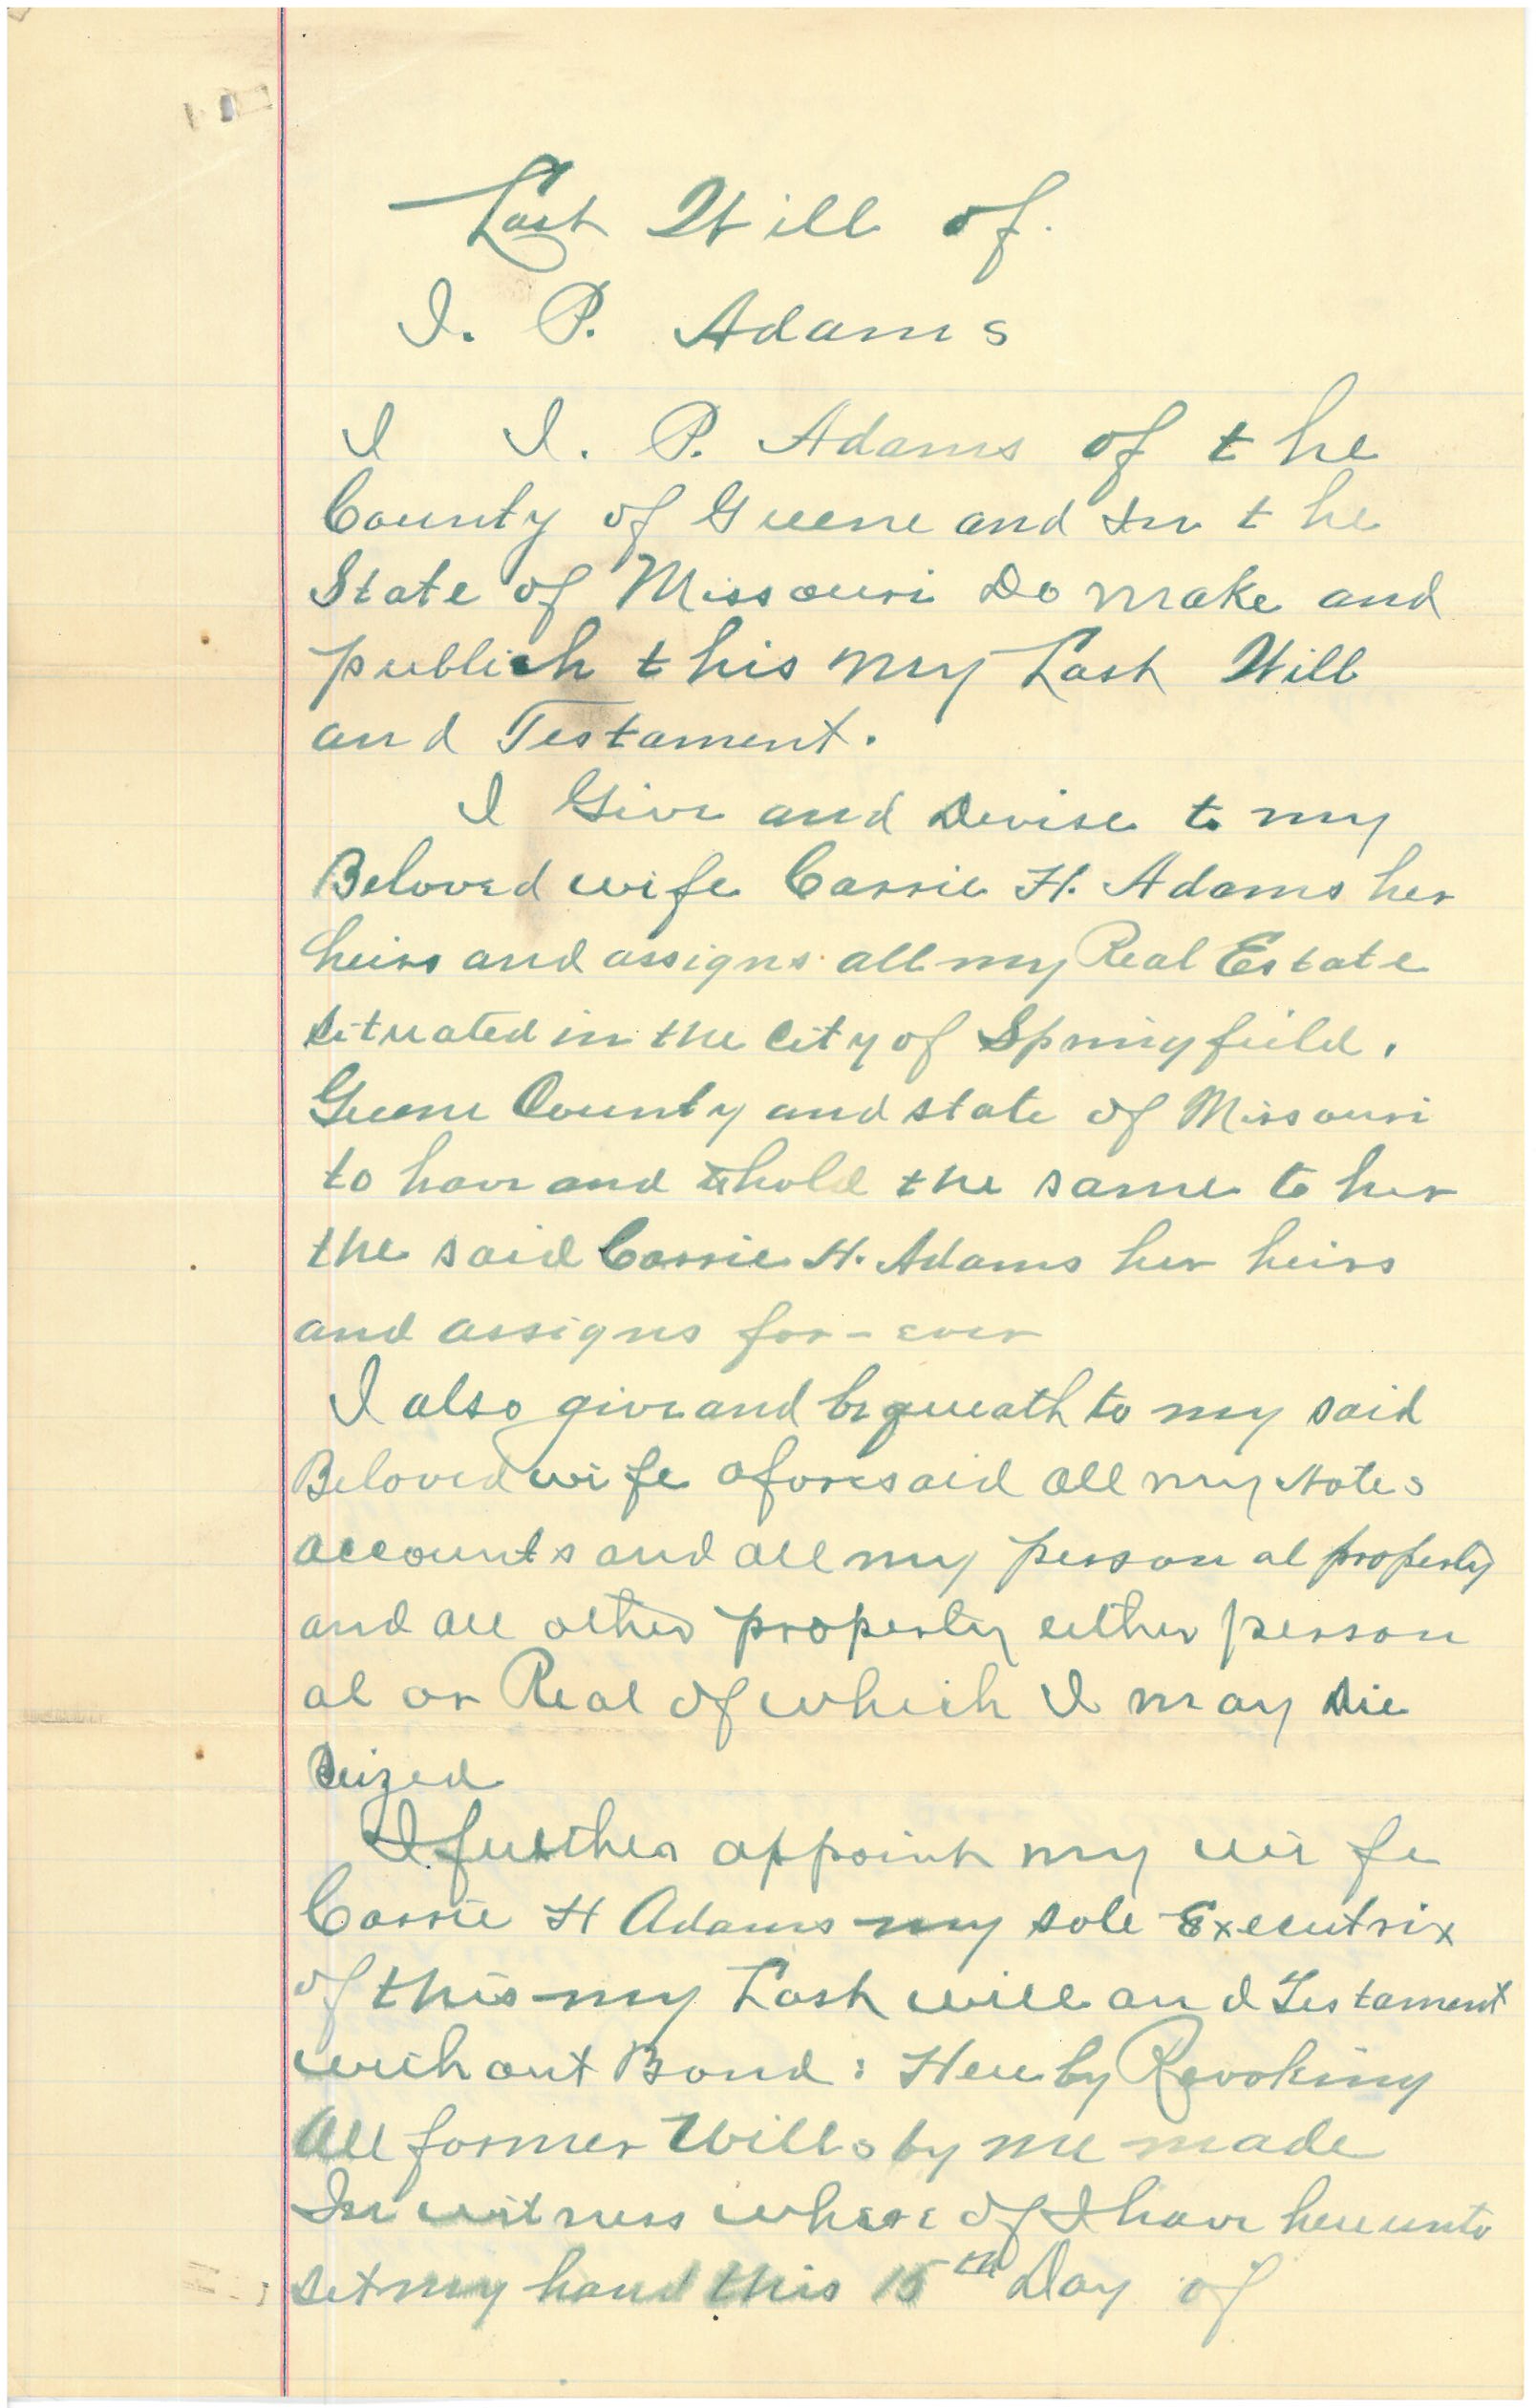 Last Will of.
I. P. Adams
I I. P. Adams of the
County of Greene and In the
State of Missouri Do make and
publish this my Last Will
and Testament.
I Give and Devise to my
Beloved wife Carrie H. Adams her
heirs and assigns all my Real Estate
situated in the City of Springfield,
Greene County and state of Missouri
to have and hold the same to her
the said Carrie H. Adams her heirs
and assigns for-ever
I also give and bequeath to my said
Beloved wife aforesaid all my Notes
accounts and all my person al property
and all other property either person
al or Real of which I may Die
Seized
I further appoint my wife
Carrie H Adams my sole Executrix
of this my Last will and Testament
without Bond: Hereby Revoking
All former Wills by me made
In witness where of I have here unto
set my hand this 15th Day of